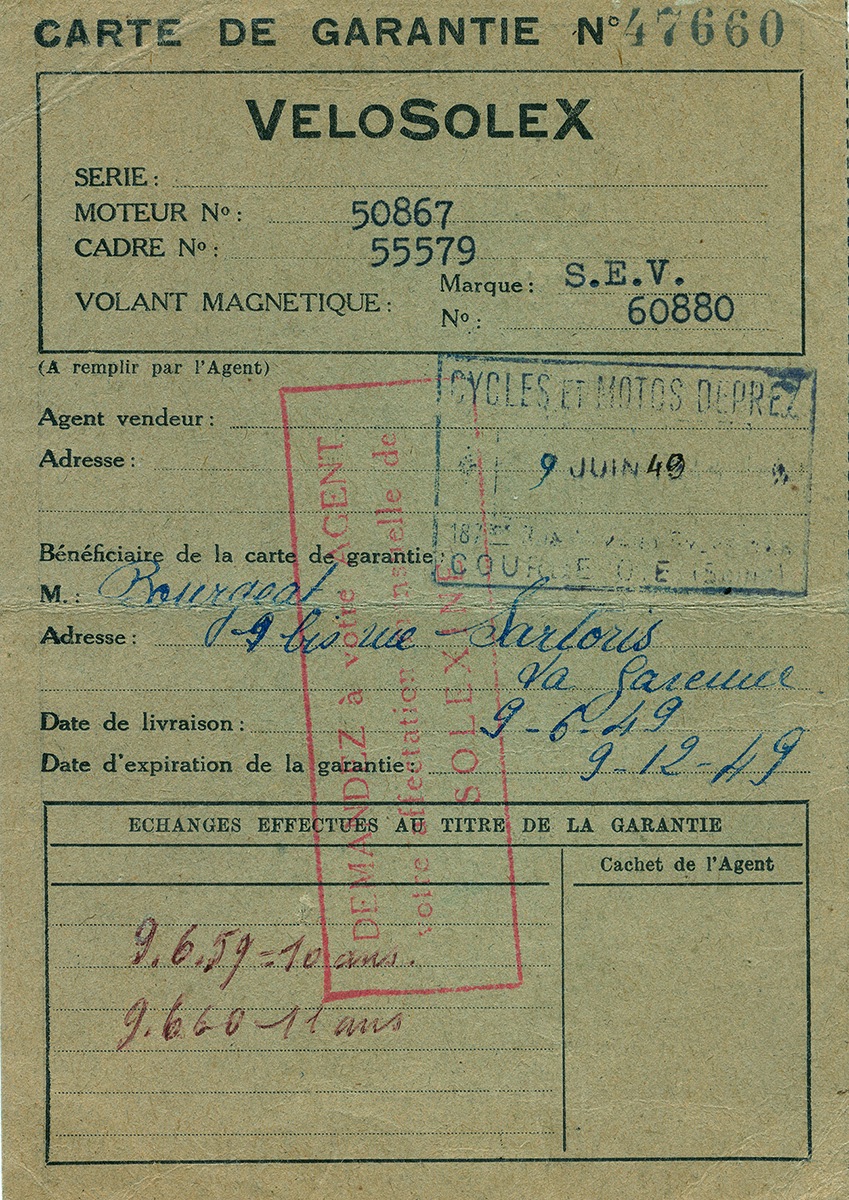 CARTE DE GARANTIE No 47660
VELOSOLEX
SERIE :
MOTEUR No : 50867
CADRE No : 55579
VOLANT MAGNETIQUE :
Marque : S.E.V.
No : 60880
(A remplir par l'Agent)
CYCLES ET MOTOS DEPREZ
Agent vendeur :
Adresse :
9 JUIN 49
187
Bénéficiaire de la carte de garantie :
M. : Bourgeat
Adresse : 9 bis rue Sartoris
La Garenne
Date de livraison : 9-6-49
Date d'expiration de la garantie : 9-12-49
DEMANDEZ à votre AGENT
votre affectation mensuelle de
SOLEXINE
ECHANGES EFFECTUES AU TITRE DE LA GARANTIE
Cachet de l'Agent
9.6.59 = 10 ans.
9.660 - 11 ans